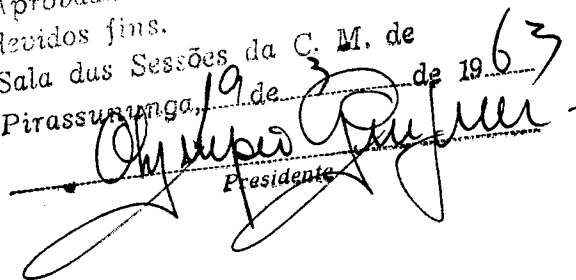 devidos fins.
Sala das Sessões da C. M. de
Pirassununga, 19 de 3 de 1963
Olympio
Presidente